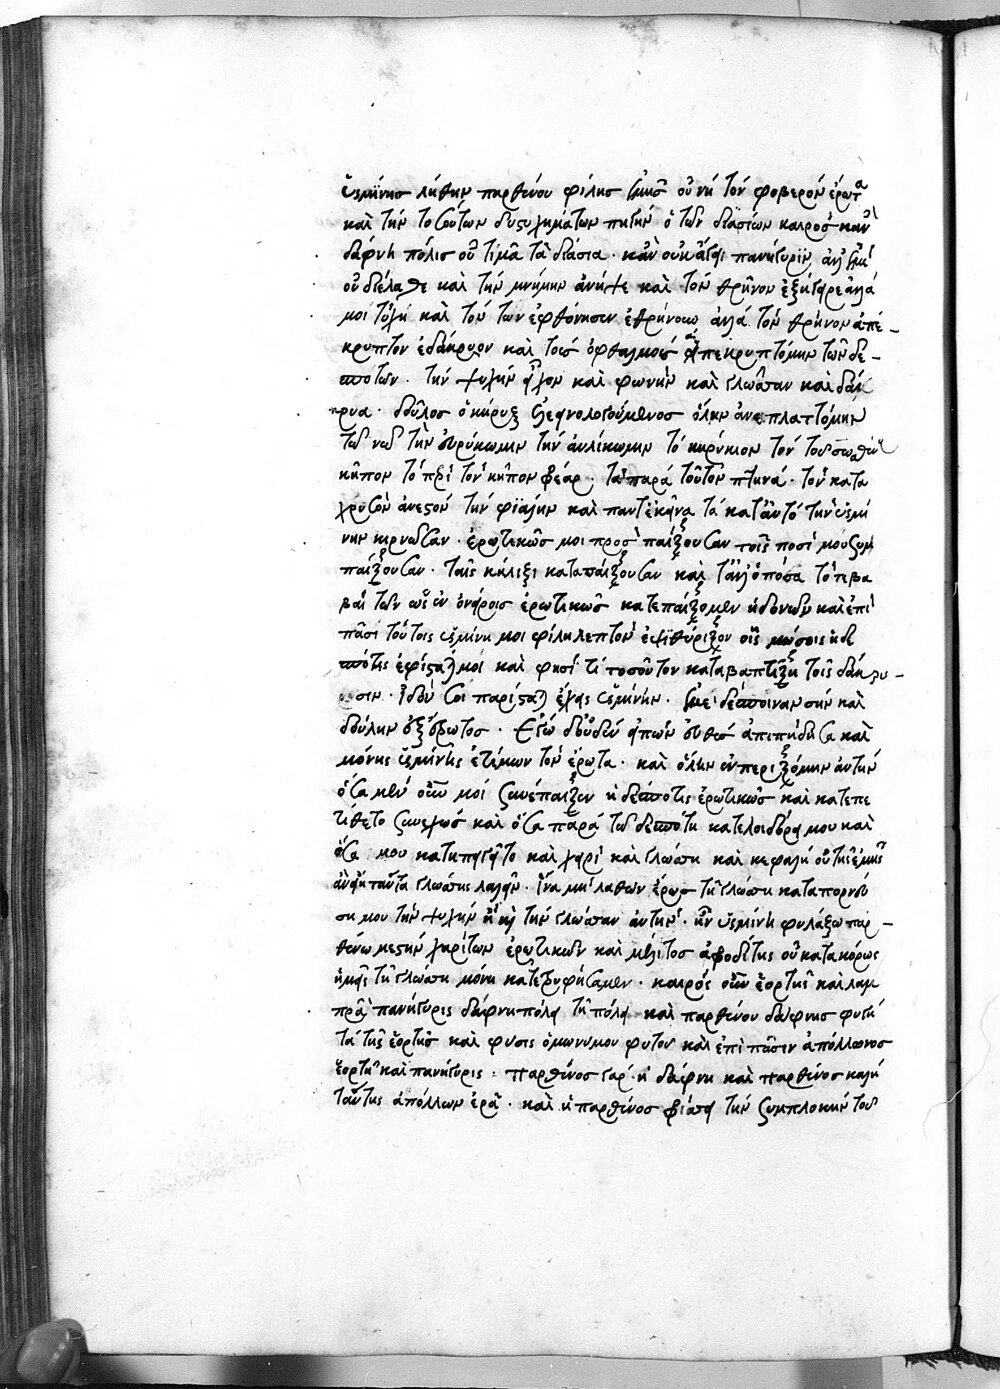 ὑσμίνης λήθην παρθένου φίλης ἡμᾶς οὐ νὴ τὸν φοβερὸν ἔρωτα
καὶ τὴν τοσούτων δυστυχημάτων πηγήν ὁ τῶν διασίων καιρὸς κἂν
δάφνη πόλις οὐ τιμᾶ τὰ διάσια. κἂν οὐκ ἄγει πανήγυριν ἀλλ' ἡμᾶς
οὐ διέλαθε καὶ τὴν μνήμην ἀνῆψε καὶ τὸν θρῆνον ἐξήγειρε ἀλλά
μοι τύχη καὶ τὸν τῶν ἐφθόνησεν ἐθρήνουν ἀλλὰ τὸν θρῆνον ἀπέ-
κρυπτον ἐδάκρυον καὶ τοὺς ὀφθαλμοὺς ἀπεκρυπτόμην τῶν δε-
σποτῶν. τὴν ψυχὴν εἶχον καὶ φωνὴν καὶ γλῶσσαν καὶ δάκ
κρυα. δοῦλος ὁ κῆρυξ ὅλην ἀνεπλαττόμην
τῶ νῶ τὴν εὐρύκωμιν τὴν αὐλίκωμιν τὸ κηρύκιον τὸν τοῦ σωσθένους
κῆπον τὸ περὶ τὸν κῆπον φρέαρ. τὰ παρὰ τοῦτον πτηνά. τὸν κατα
χρυσον ἀετὸν τὴν φιάλην καὶ πάντ' ἐκεῖνα τὰ κατ' αὐτὸ τὴν ὑσμί
νην κιρνῶσαν. ἐρωτικῶς μοι προσπαίζουσαν τοῖς ποσί μου συμ
παίζουσαν. ταῖς κύλιξι καταπαίζουσαν καὶ τἄλλ' ὁπόσα
ὡς ἐν ὀνείροις ἐρωτικῶς κατεπαίζομεν ἡδονῶν καὶ ἐπὶ
πᾶσι τούτοις ὑσμίνη μοι φίλη λεπτὸν ἐψιθύριζον οἷς ἡ δε
σπότις ἐφίσταταί μοι καὶ φησί τί τοσοῦτον καταβαπτίζη τοῖς δάκρυ-
σιν. ἰδού σοι παρίσταται ἔχεις ὑσμίνην. ἐμὲ δέσποιναν σὴν καὶ
δούλην ἐξ ἔρωτος. ἐγὼ δ' οὐδὲν εἰπὼν εὐθὺς ἀπεπήδησα καὶ
μόνης ὑσμίνης ἐτίμων τὸν ἔρωτα. καὶ ὅλην ἐνπεριεζόμην αὐτὴν
ὅσα μὲν οὖν μοί συνέπαιζεν ἡ δεσπότις ἐρωτικῶς καὶ κατεπε
τίθετο συνεχῶς καὶ ὅσα παρὰ τῶ δεσπότη κατελοιδόρει μου καὶ
ὅσα μου κατηπειλεῖτο καὶ χειρὶ καὶ γλώσση καὶ κεφαλῆ οὐ τῆς ἐμῆς
ἀνέξῃ ταῦτα γλώσσης λαλεῖν. ἵνα μὴ λαθὼν ἔρως τῆ γλώσση καταπορνεύ
ση μου τὴν ψυχὴν ἢ καὶ τὴν γλῶσσαν αὐτήν. ἣν ὑσμίνη φυλάξω παρ-
θένω μεστὴν χαρίτων ἐρωτικῶν καὶ μέλιτος ἀφροδίτης οὐ κατακόρως
ἡμεῖς τῆ γλώσση μόνη κατετρυφήσαμεν. καιρὸς οὖν ἑορτῆς καὶ λαμ
πρὰ πανήγυρις δάφνη πόλει τῆ πόλει καὶ παρθένου δάφνης φυτῆ
τὰ τῆς ἑορτῆς καὶ φύσις ὁμωνύμου φυτοῦ καὶ ἐπὶ πᾶσιν ἀπόλλωνος
ἑορτὴ καὶ πανήγυρις. παρθένος γὰρ ἡ δάφνη καὶ παρθένος καλὴ
ταύτης ἀπόλλων ἐρᾶ. καὶ ἡ παρθένος φεύγει τὴν συμπλοκὴν τοῦ